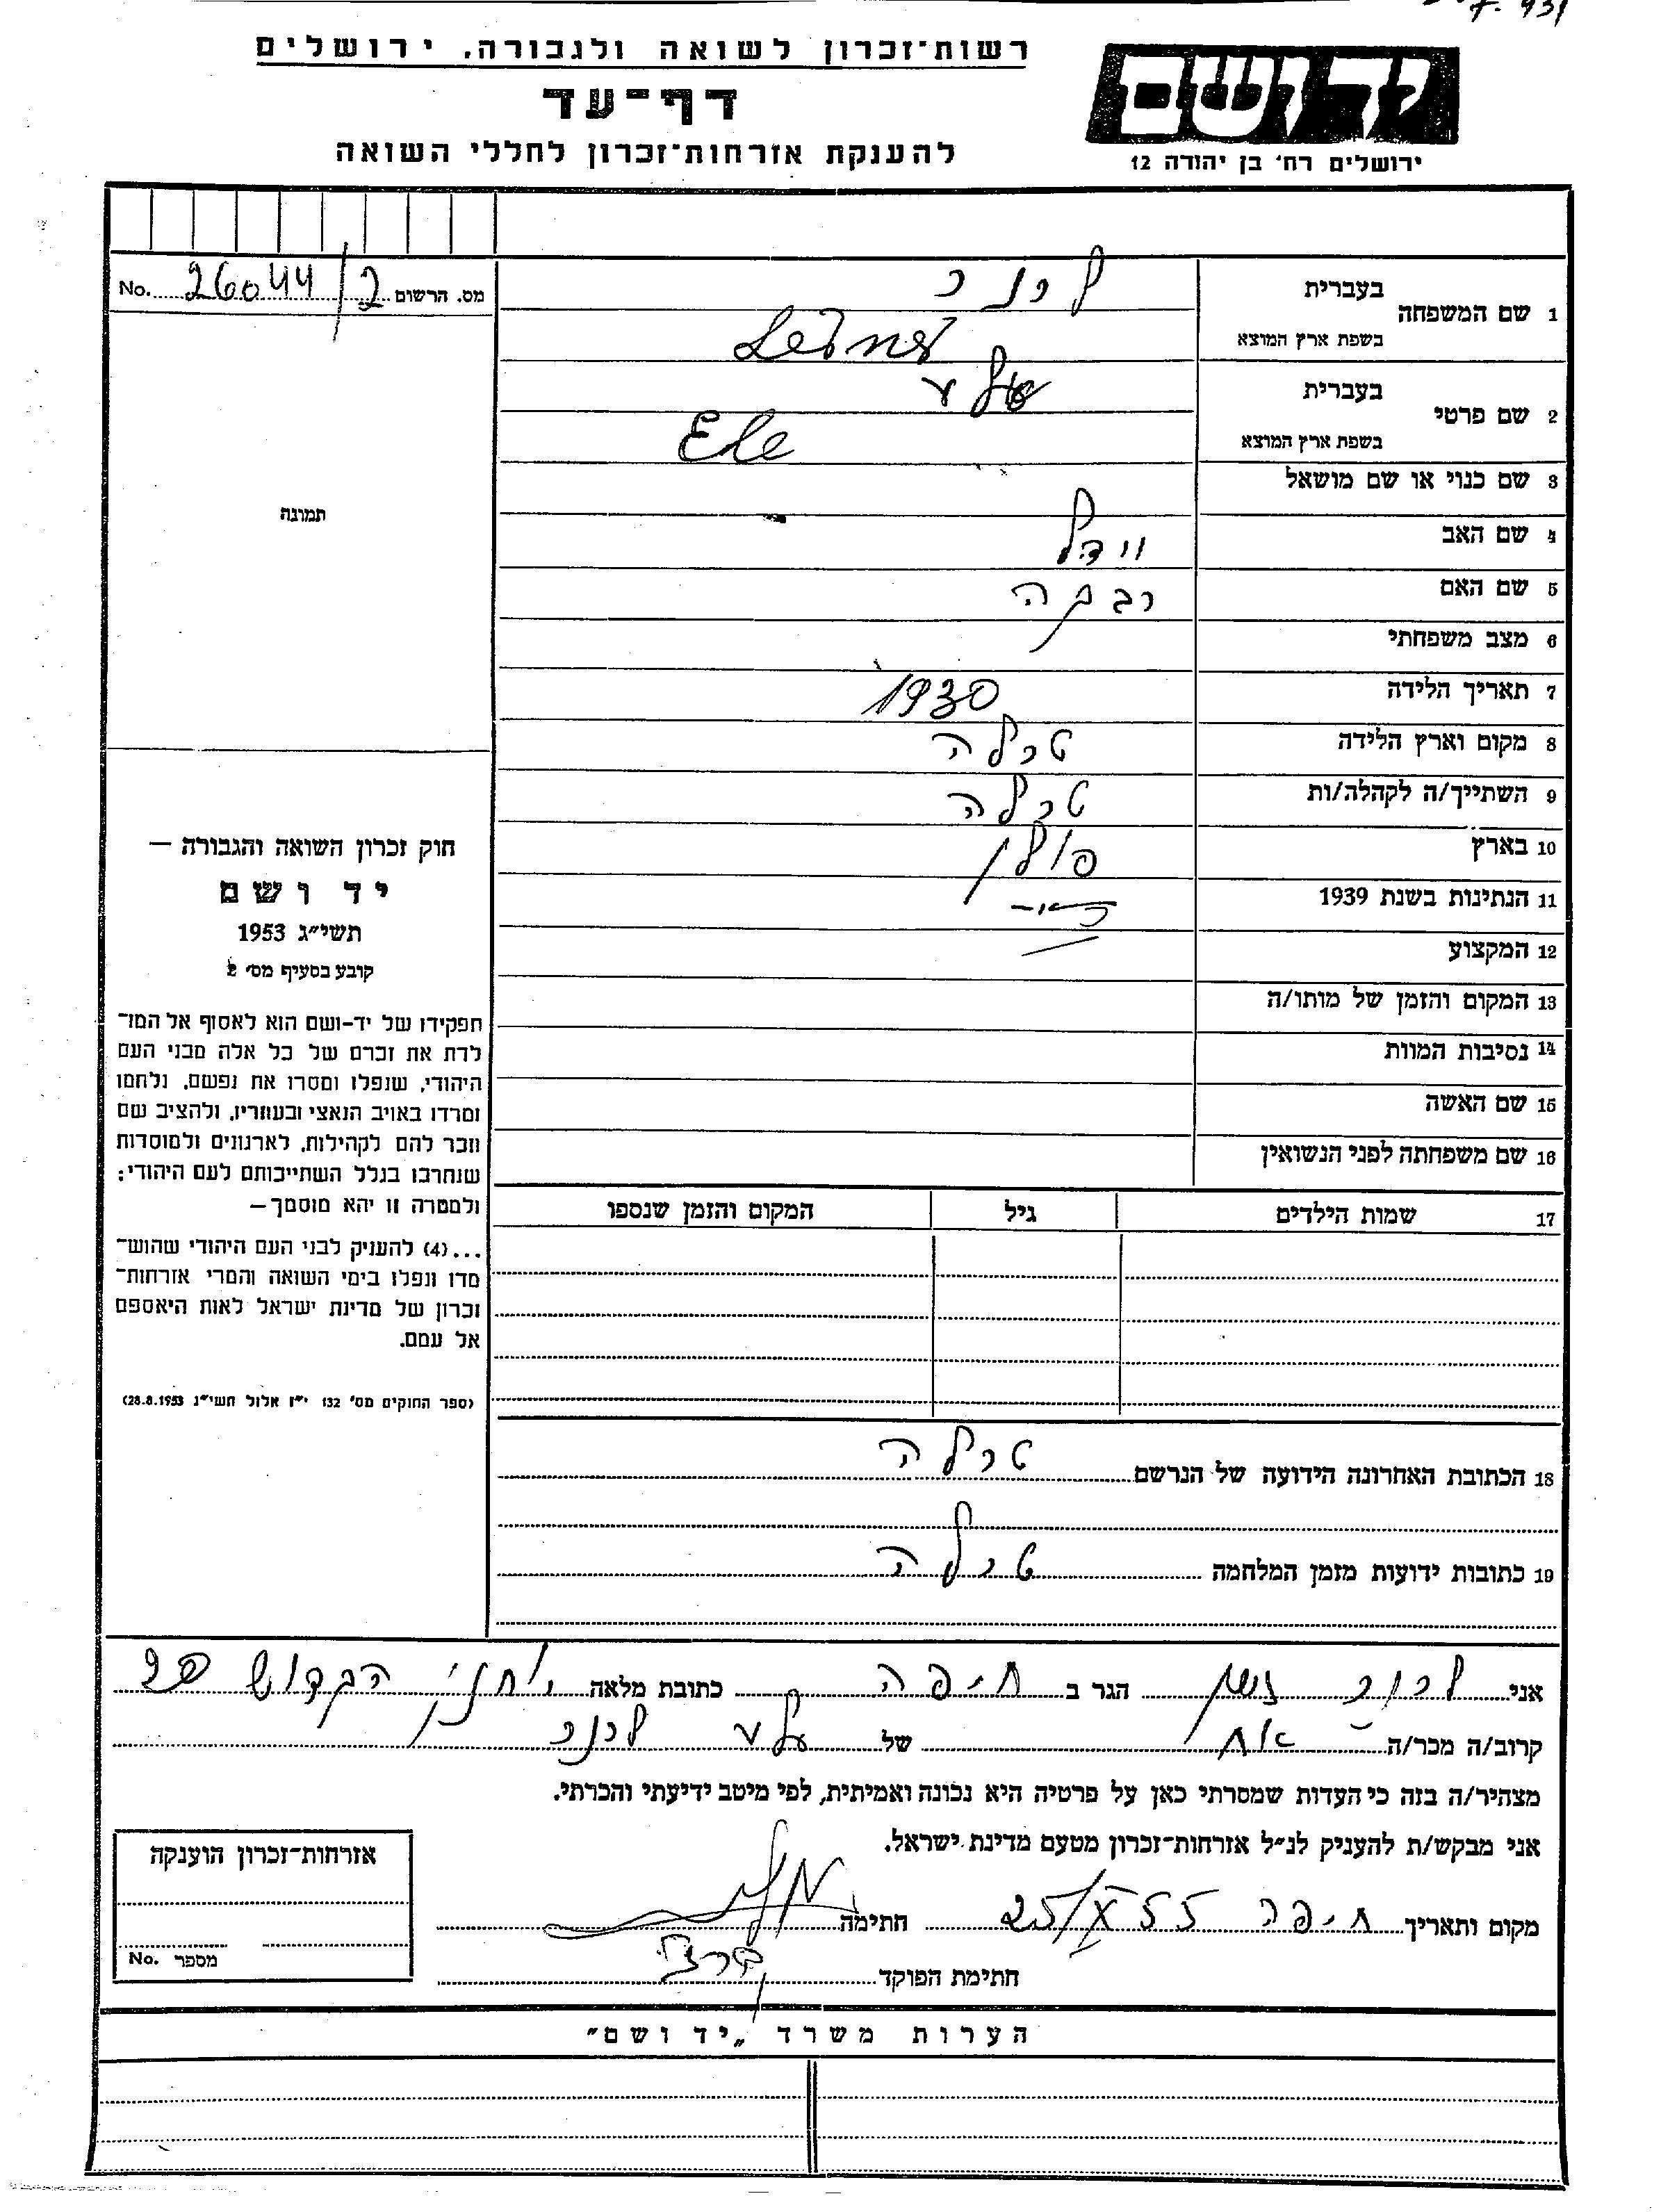 רשות־זכרון לשואה ולגבורה. ירושלים
דף־עד
להענקת אזרחות־זכרון לחללי השואה
יד ושם
ירושלים רח׳ בן יהודה 12
מס. הרשום 26044/2 No.
תמונה
1 שם המשפחה
בעברית לרנר
בשפת ארץ המוצא Lerner
2 שם פרטי
בעברית
בשפת ארץ המוצא
3 שם כנוי או שם מושאל
4 שם האב
5 שם האם רבקה
6 מצב משפחתי
7 תאריך הלידה 1930
8 מקום וארץ הלידה טרלה
9 השתייך/ה לקהלה/ות טרלה
10 בארץ פולין
11 הנתינות בשנת 1939
12 המקצוע
13 המקום והזמן של מותו/ה
14 נסיבות המוות
15 שם האשה
16 שם משפחתה לפני הנשואין
17 שמות הילדים גיל המקום והזמן שנספו
18 הכתובת האחרונה הידועה של הנרשם טרלה
19 כתובות ידועות מזמן המלחמה טרלה
חוק זכרון השואה והגבורה —
יד ושם
תשי״ג 1953
קובע בסעיף מס׳ 2
תפקידו של יד-ושם הוא לאסוף אל המו־
לדת את זכרם של כל אלה מבני העם
היהודי, שנפלו ומסרו את נפשם, נלחמו
ומרדו באויב הנאצי ובעוזריו, ולהציב שם
וזכר להם לקהילות, לארגונים ולמוסדות
שנחרבו בגלל השתייכותם לעם היהודי;
ולמטרה זו יהא מוסמך —
...(4) להעניק לבני העם היהודי שהוש־
מדו ונפלו בימי השואה והמרי אזרחות־
זכרון של מדינת ישראל לאות היאספם
אל עמם.
(ספר החוקים מס׳ 132 י״ז אלול תשי״ג 28.8.1953)
אני לרנר הגר ב חיפה כתובת מלאה
קרוב/ה מכר/ה אח של לרנר
מצהיר/ה בזה כי העדות שמסרתי כאן על פרטיה היא נכונה ואמיתית, לפי מיטב ידיעתי והכרתי.
אני מבקש/ת להעניק לנ״ל אזרחות־זכרון מטעם מדינת ישראל.
מקום ותאריך חיפה 25/X 55 חתימה
חתימת הפוקד
אזרחות־זכרון הוענקה
מספר No.
הערות משרד „יד ושם״